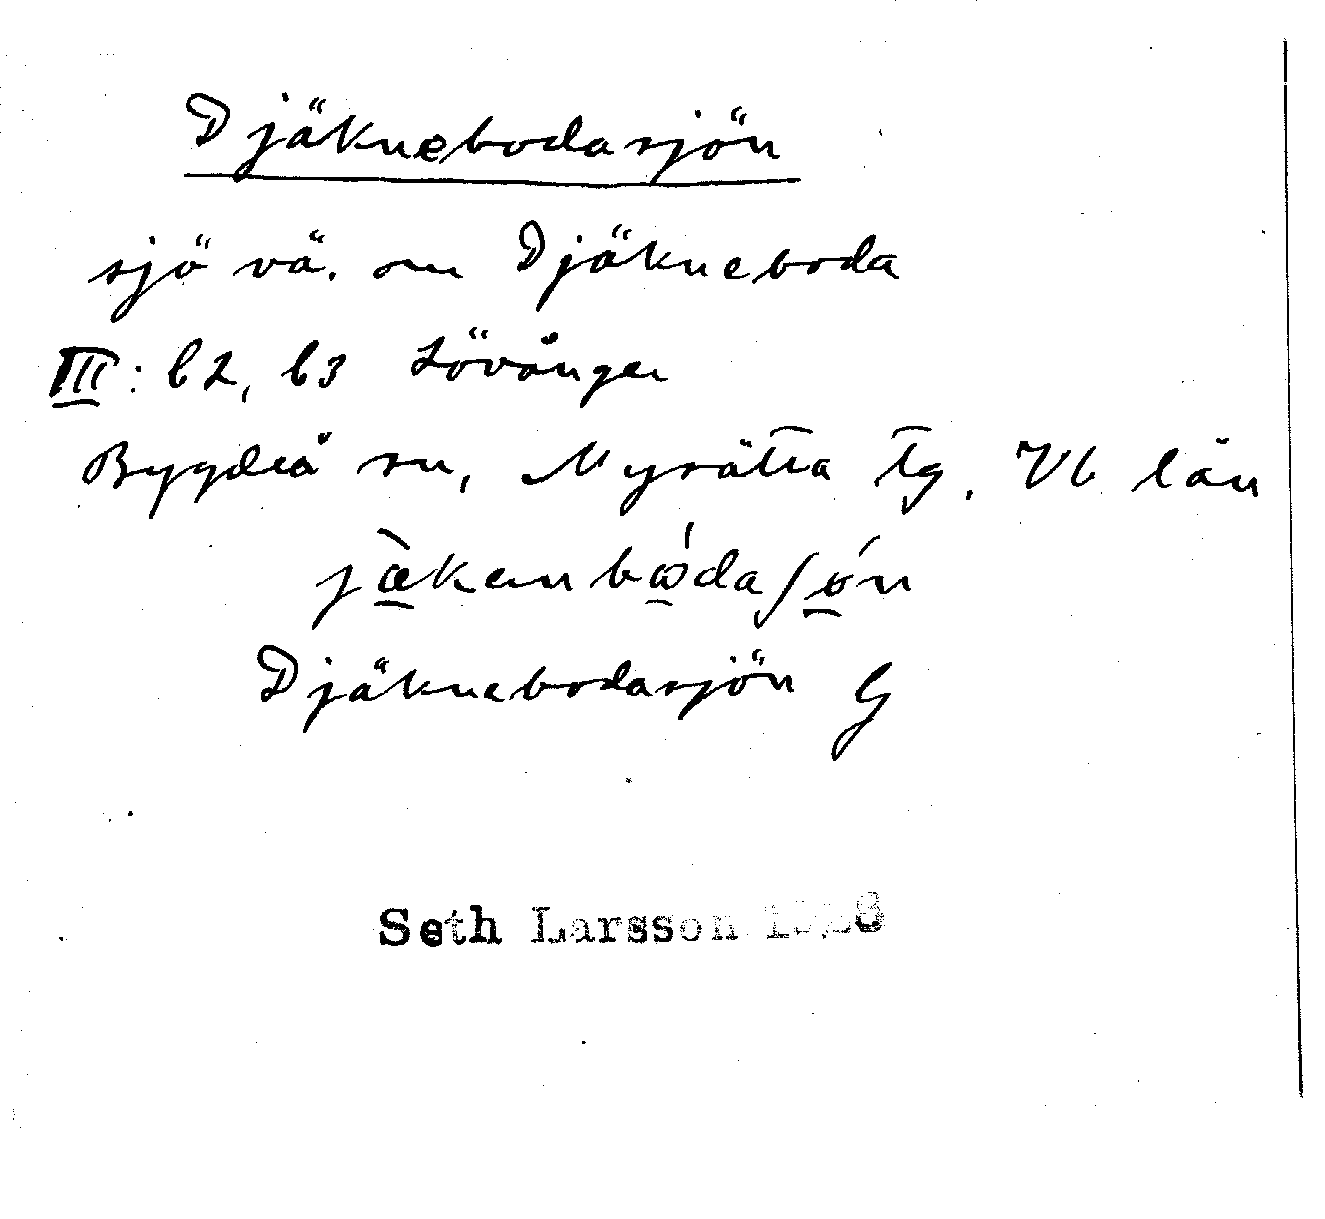 Djäknebodasjön
sjö vä. om Djäkneboda
III: b2, b3 Lövånger
Bygdeå sn, Nysätra tg. Vb län
Djäknebodasjön G
Seth Larsson